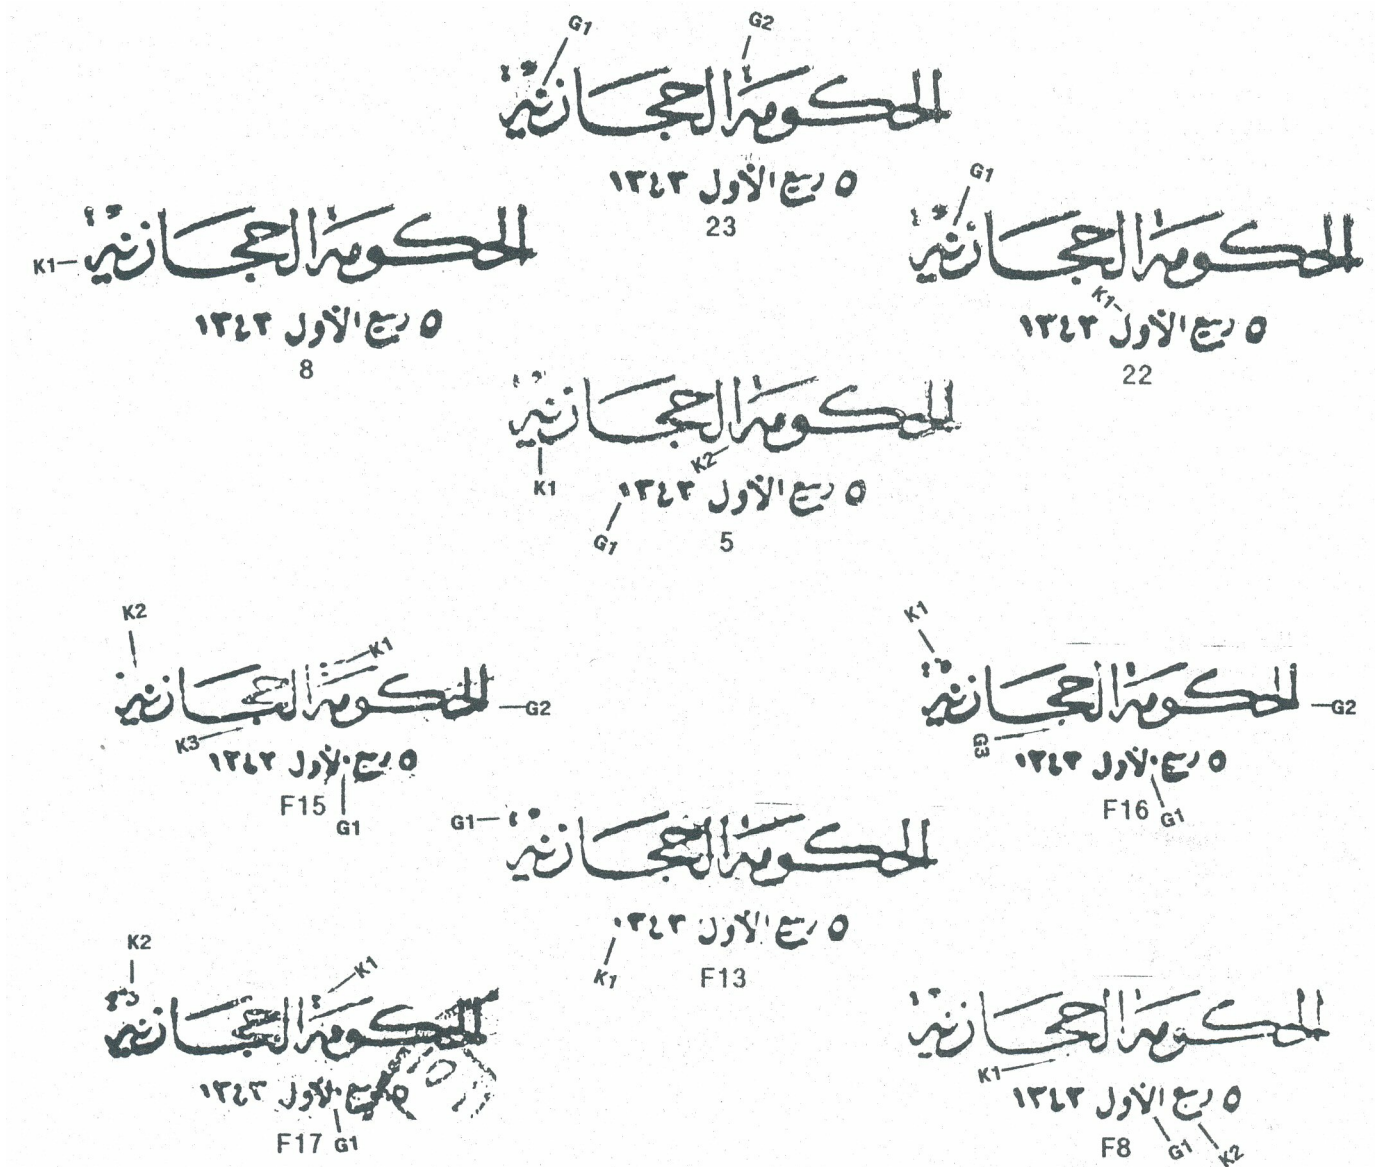 G1 G2
الحكومة الحجازية
٥ ربيع الأول ١٣٤٣
23
K1
الحكومة الحجازية
٥ ربيع الأول ١٣٤٣
8
G1
الحكومة الحجازية
K1
٥ ربيع الأول ١٣٤٣
22
الحكومة الحجازية
K1 K2
٥ ربيع الأول ١٣٤٣
G1
5
K2 K1
الحكومة الحجازية
G2
K3
٥ ربيع الأول ١٣٤٣
F15 G1
K1
الحكومة الحجازية
G2
G3
٥ ربيع الأول ١٣٤٣
F16 G1
G1
الحكومة الحجازية
٥ ربيع الأول ١٣٤٣
K1 F13
K2 K1
الحكومة الحجازية
٥ ربيع الأول ١٣٤٣
F17 G1
الحكومة الحجازية
K1
٥ ربيع الأول ١٣٤٣
F8 G1 K2